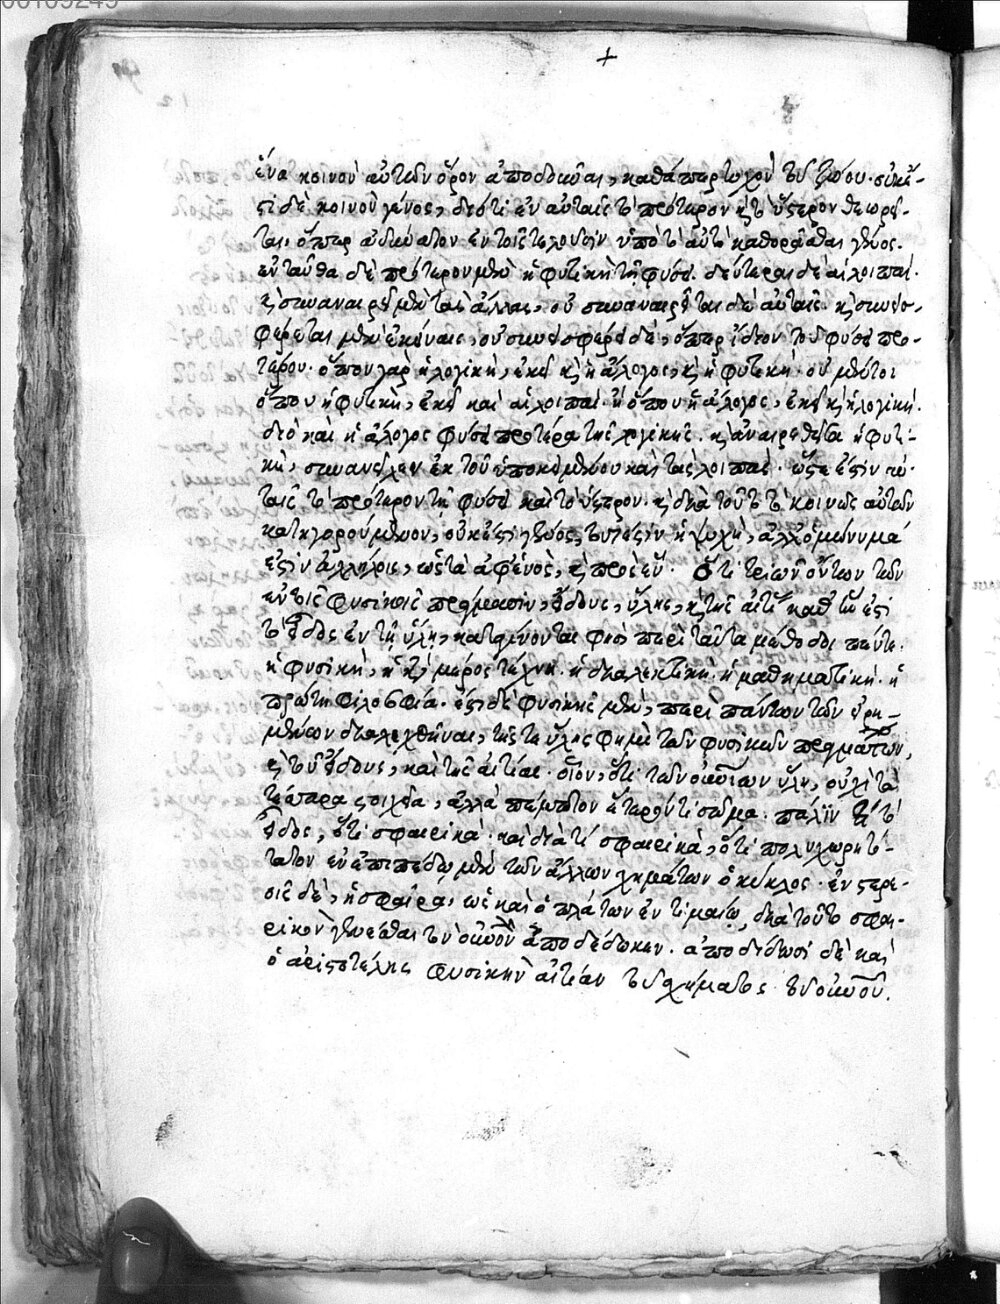 00109249
+
ἕνα κοινὸν αὐτῶν ὅρον ἀποδοῦναι, καθάπερ τυχὸν τοῦ ζώου. οὐκέ-
τι δὲ κοινοῦ γένος, διότι ἐν αὐταῖς τὸ πρότερον καὶ τὸ ὕστερον θεωρεῖ-
ται, ὅπερ ἀδύνατον ἐν τοῖς τελοῦσιν ὑπὸ τὸ αὐτὸ καθορᾶσθαι γένος.
ἐνταῦθα δὲ πρότερον μὲν ἡ φυτικὴ τῇ φύσει. δεύτεραι δὲ αἱ λοιπαί.
καὶ συναναιρεῖ μὲν τὰς ἄλλας, οὐ συναναιρεῖται δὲ αὐταῖς. καὶ συνεισ-
φέρεται μὲν ἐκείναις, οὐ συνεισφέρει δὲ, ὅπερ ἴδιον τοῦ φύσει προ-
τέρου. ὅπου γὰρ ἡ λογικὴ, ἐκεῖ καὶ ἡ ἄλογος, καὶ ἡ φυτική. οὐ μέντοι
ὅπου ἡ φυτικὴ, ἐκεῖ καὶ αἱ λοιπαί. ἢ ὅπου ἡ ἄλογος, ἐκεῖ καὶ ἡ λογική.
διὸ καὶ ἡ ἄλογος φύσει προτέρα τῆς λογικῆς. καὶ ἀναιρεθεῖσα ἡ φυτι-
κὴ, συνανεῖλεν ἐκ τοῦ ὑποκειμένου καὶ τὰς λοιπάς. ὥστε ἐστὶν αὐ-
ταῖς τὸ πρότερον τῇ φύσει καὶ τὸ ὕστερον. καὶ διὰ τοῦτο τὸ κοινῶς αὐτῶν
κατηγορούμενον, οὐκ ἔστι γένος, τουτέστιν ἡ ψυχὴ, ἀλλ' ὁμώνυμά
ἐστιν ἀλλήλοις, ὡς τὰ ἀφ' ἑνὸς, καὶ πρὸς ἕν. Ὅτι τριῶν ὄντων τῶν
ἐν τοῖς φυσικοῖς πράγμασιν, εἴδους, ὕλης, καὶ τῆς αἰτίας καθ' ἣν ἐστὶ
τὸ εἶδος ἐν τῇ ὕλῃ, καταγίνονται φησὶ περὶ ταῦτα μέθοδοι πέντε.
ἡ φυσικὴ, ἡ κατὰ μέρος τέχνη. ἡ διαλεκτική. ἡ μαθηματική. ἡ
πρώτη φιλοσοφία. ἔστι δὲ φυσικῆς μὲν, περὶ πάντων τῶν εἰρη-
μένων διαλεχθῆναι, τῆς τε ὕλης φημὶ τῶν φυσικῶν πραγμάτων,
καὶ τοῦ εἴδους, καὶ τῆς αἰτίας. οἷον, ὅτι τῶν οὐρανίων ὕλη, οὐχὶ τὰ
τέσσαρα στοιχεῖα, ἀλλὰ πέμπτον ἕτερόν τι σῶμα. πάλιν τὸ
εἶδος, ὅτι σφαιρικά. καὶ διὰ τί σφαιρικὰ, ὅτι πολυχωρητό-
τατον ἐν ἐπιπέδῳ μὲν τῶν ἄλλων σχημάτων ὁ κύκλος. ἐν στερε-
οῖς δὲ, ἡ σφαῖρα, ὡς καὶ ὁ πλάτων ἐν τιμαίῳ, διὰ τοῦτο σφαι-
ρικὸν γενέσθαι τὸν οὐρανὸν ἀποδέδωκεν. ἀποδίδωσι δὲ καὶ
ὁ ἀριστοτέλης φυσικὴν αἰτίαν τοῦ σχήματος τοῦ οὐρανοῦ.